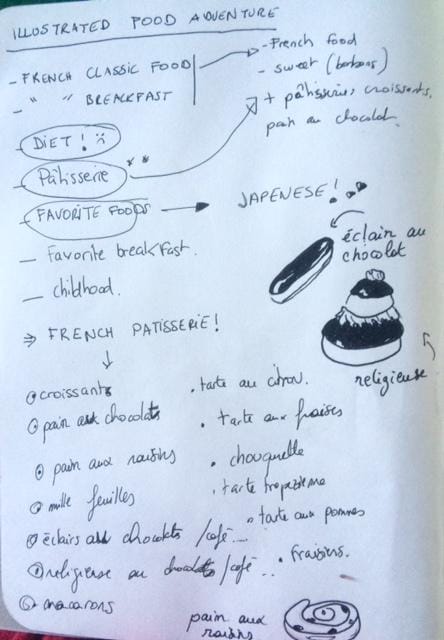 ILLUSTRATED FOOD ADVENTURE
- FRENCH CLASSIC FOOD
- " " BREAKFAST
- French food
- sweet (bonbons)
+ pâtisseries, croissants,
pain au chocolat.
- DIET !
- Pâtisserie **
- FAVORITE FOODS → JAPENESE !
- Favorite breakfast.
- childhood.
éclair au
chocolat
religieuse
⇒ FRENCH PATISSERIE !
croissants
pain aux chocolats
pain aux raisins
mille feuilles
éclairs au chocolats / café...
religieuse au chocolats / café..
macarons
. tarte au citron.
. tarte aux fraises
. chouquette
. tarte tropezienne
. tarte aux pommes
. fraisiers.
pain aux
raisins